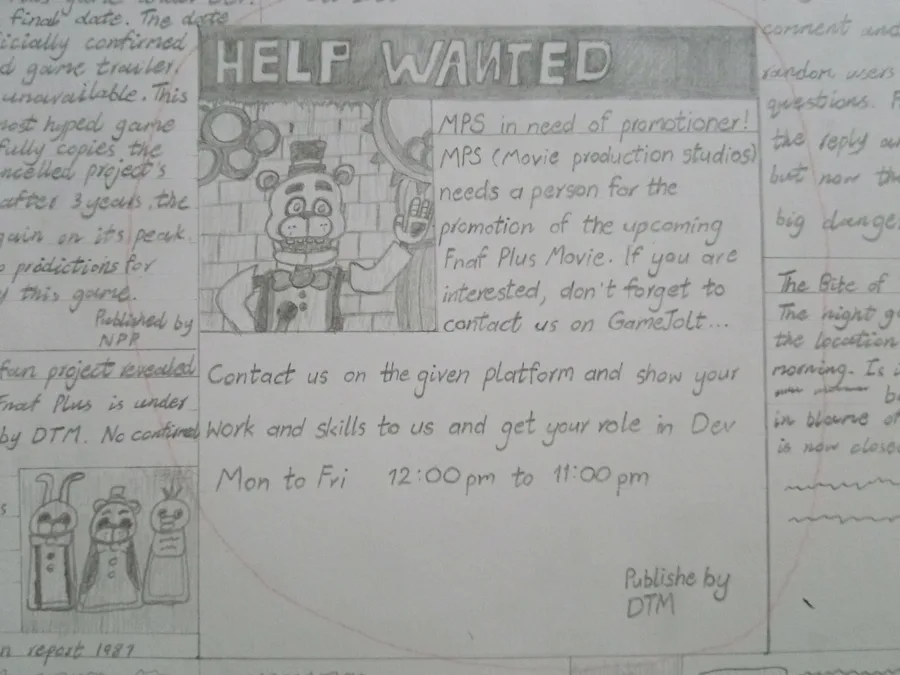 final date. The date
icially confirmed
d game trailer.
unavailable. This
most hyped game
fully copies the
ncelled project's
after 3 years. the
gain on its peak.
predictions for
this game.
Published by
NPP
fan project revealed
Fnaf Plus is under
by DTM. No confirmed
report 1987
HELP WANTED
MPS in need of promotioner!
MPS (Movie production studios)
needs a person for the
promotion of the upcoming
Fnaf Plus Movie. If you are
interested, don't forget to
contact us on GameJolt...
Contact us on the given platform and show your
work and skills to us and get your role in Dev
Mon to Fri 12:00pm to 11:00pm
Publishe by
DTM
comment and
random users
questions. F
the reply
but now th
big dange
The Bite of
The night g
the location
morning. Is i
b
in blame of
is now close